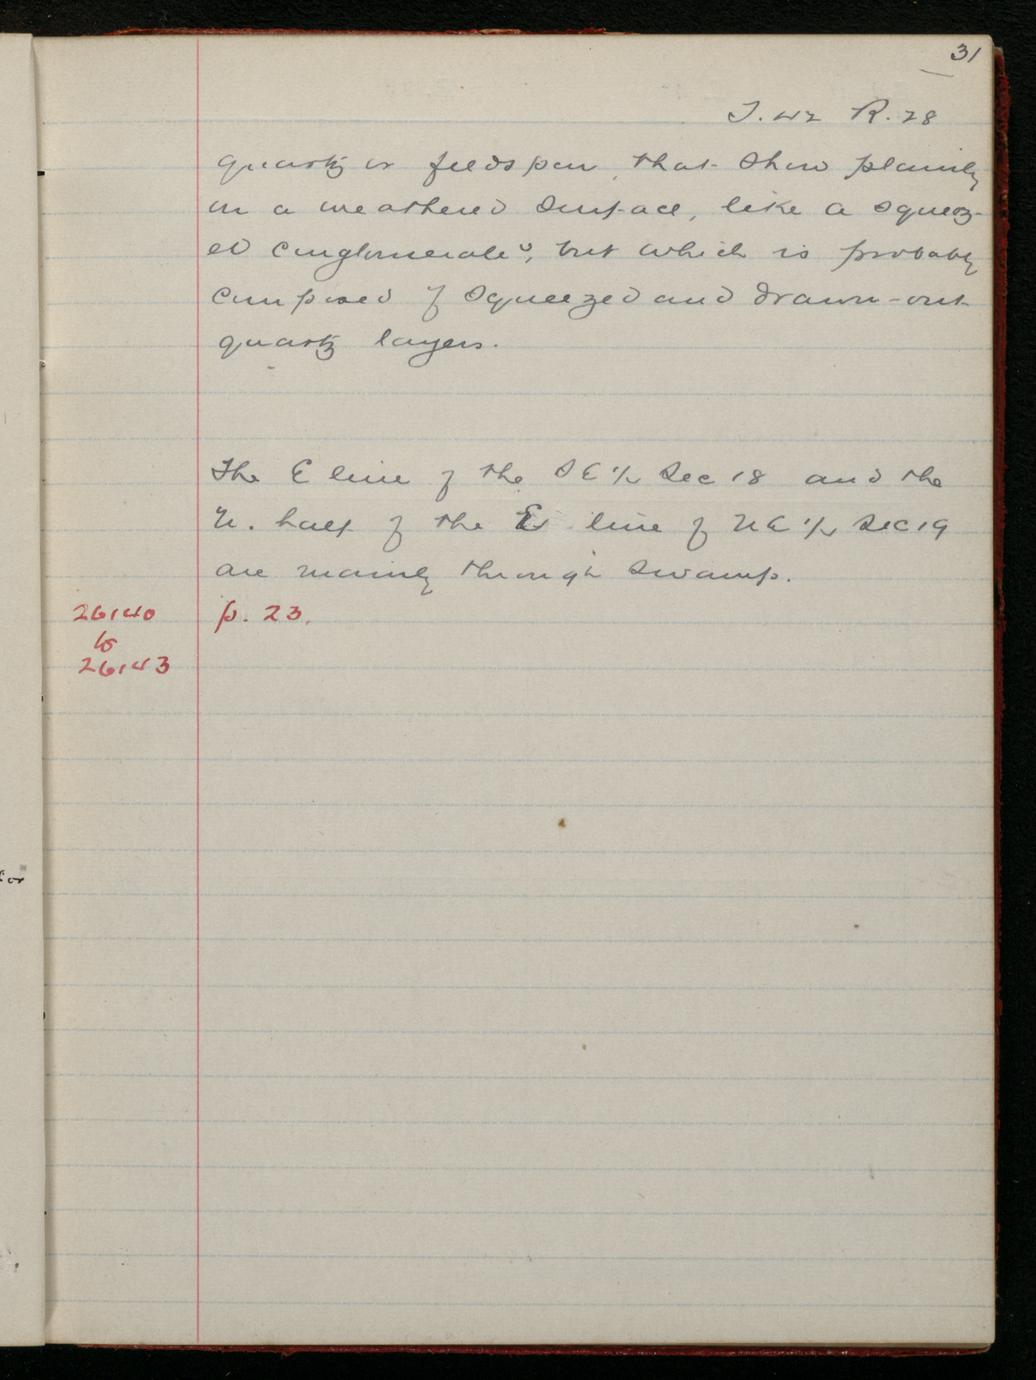 31
T. 42 R. 28
quartz or feldspar, that show plainly
on a weathered surface, like a squeez-
ed conglomerate, but which is probably
composed of squeezed and drawn-out
quartz layers.
The E line of the SE 1/4 Sec 18 and the
N. half of the E line of NE 1/4 Sec 19
are mainly through swamp.
26140 p. 23.
to
26143
for